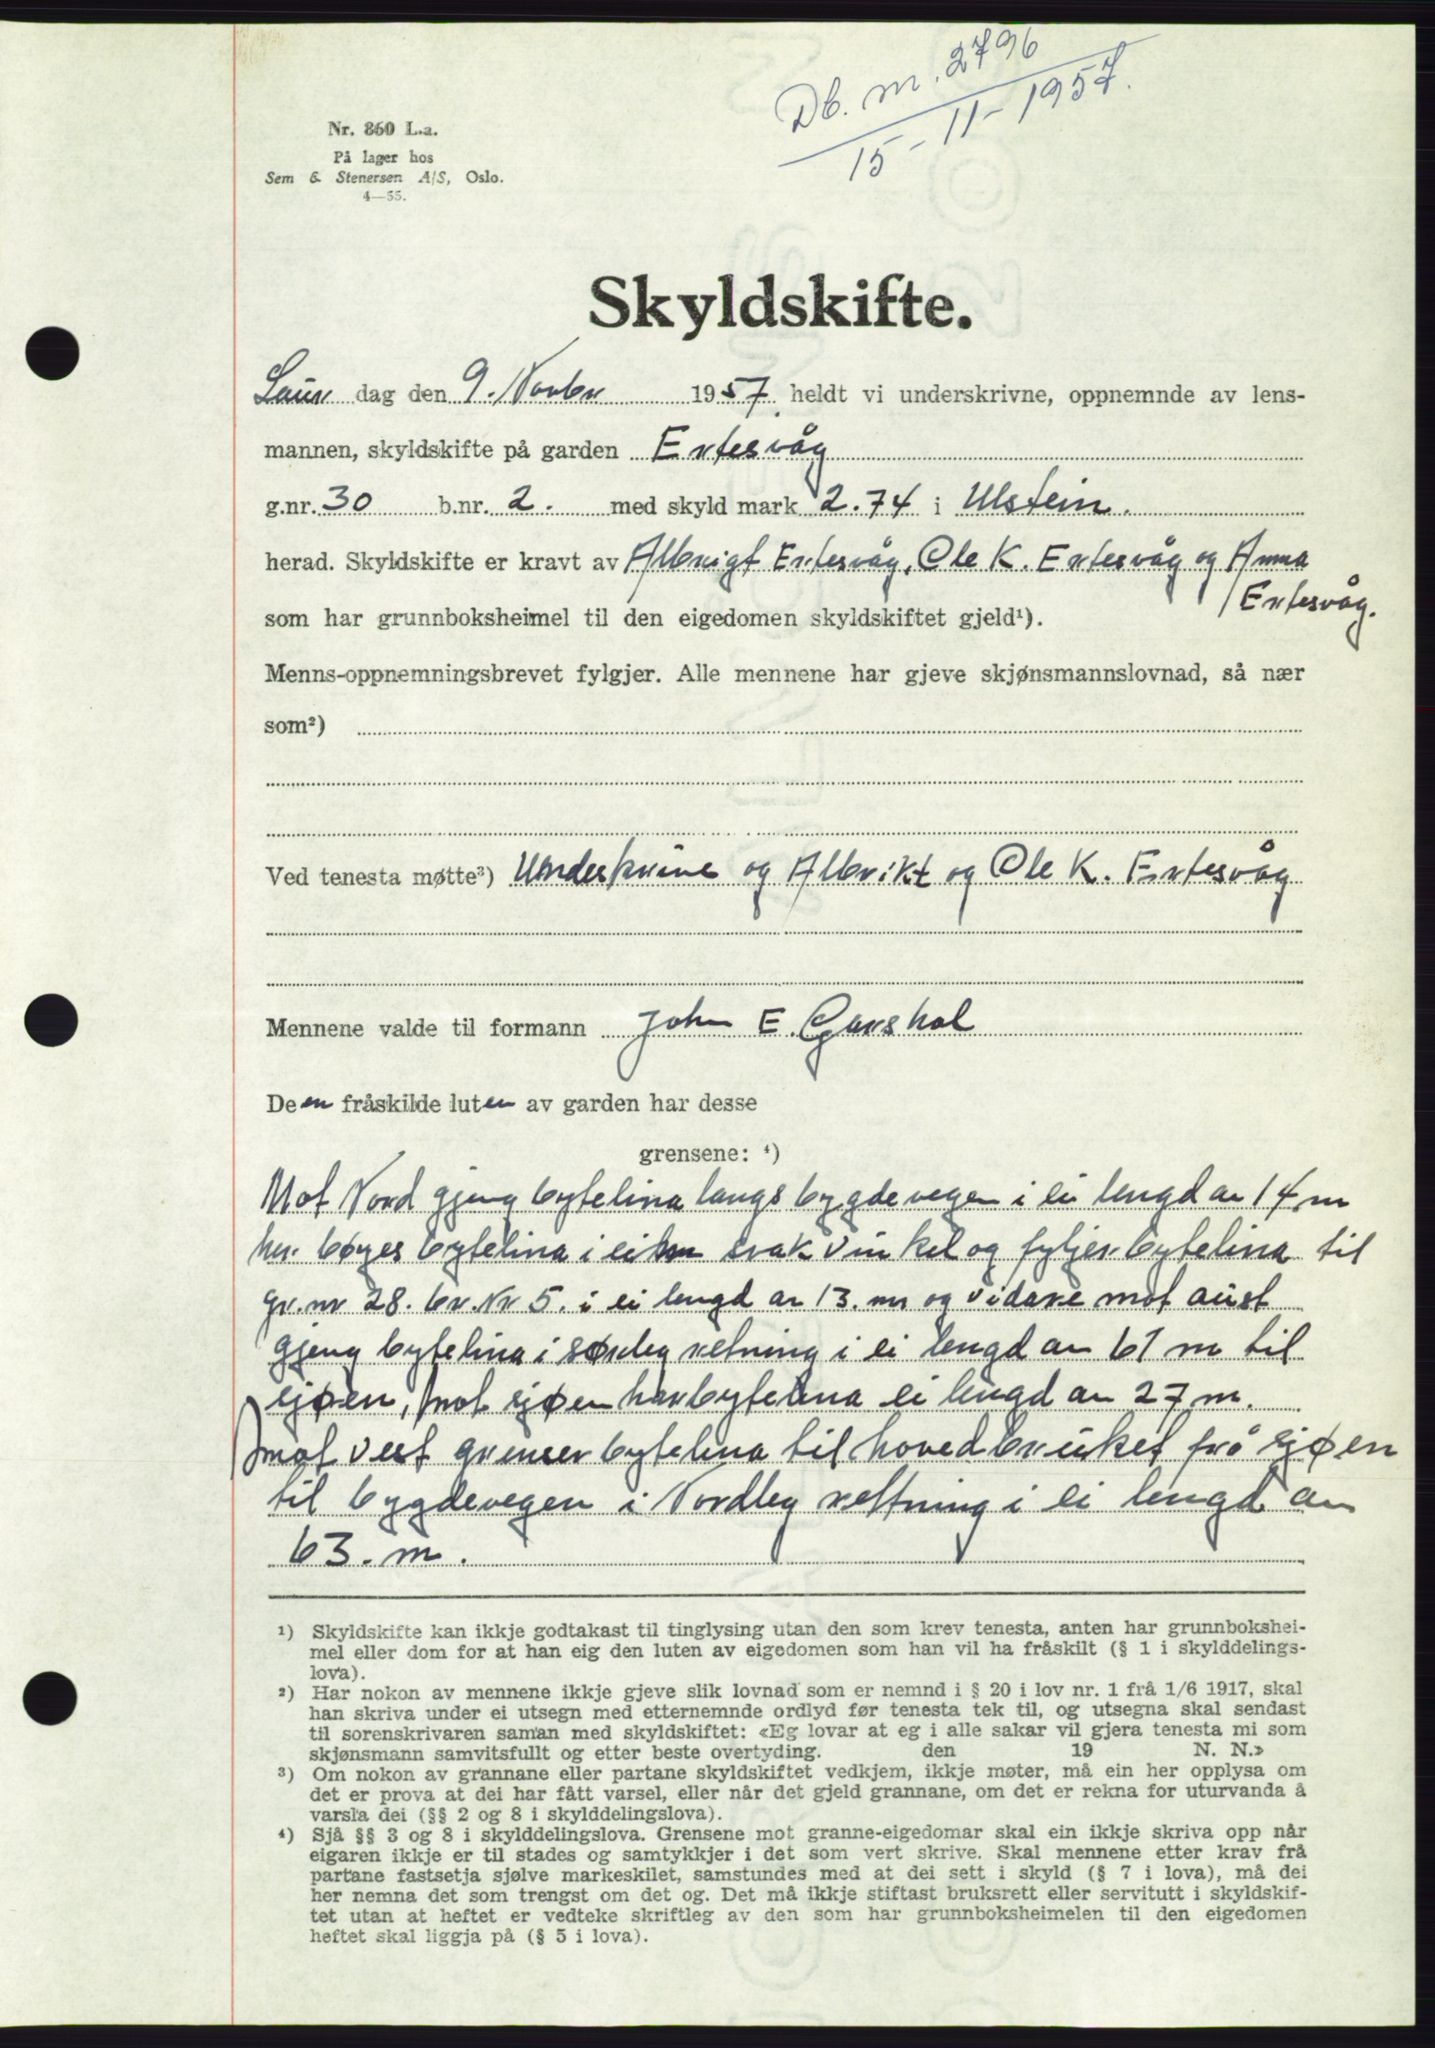 Db. nr. 2796
15-11-1957.
Nr. 860 L.a.
På lager hos
Sem & Stenersen A/S, Oslo.
4—55.
Skyldskifte.
Laur dag den 9. Novbr 1957 heldt vi underskrivne, oppnemnde av lens-
mannen, skyldskifte på garden Ertesvåg
g.nr. 30 b.nr. 2. med skyld mark 2.74 i Ulstein.
herad. Skyldskifte er kravt av Albrigt Ertesvåg, Ole K. Ertesvåg og Anna
Ertesvåg.
som har grunnboksheimel til den eigedomen skyldskiftet gjeld¹).
Menns-oppnemningsbrevet fylgjer. Alle mennene har gjeve skjønsmannslovnad, så nær
som²)
Ved tenesta møtte³) Underskrivne og Albrikt og Ole K. Ertesvåg
Mennene valde til formann John E. Garshol
Deen fråskilde luten av garden har desse
grensene: ⁴)
Mot Nord gjeng bytelina langs bygdevegen i ei lengd av 14 m
her bøyes bytelina i ein svak vinkel og fylgjer bytelina til
gr.nr 28. br.Nr 5. i ei lengd av 13. m og vidare mot aust
gjeng bytelina i sørleg retning i ei lengd av 61 m til
sjøen, mot sjøen har bytelina ei lengd av 27 m.
mot vest grenser bytelina til hovedbruket frå sjøen
til bygdevegen i Nordleg rettning i ei lengd av
63. m.
¹) Skyldskifte kan ikkje godtakast til tinglysing utan den som krev tenesta, anten har grunnbokshei-
mel eller dom for at han eig den luten av eigedomen som han vil ha fråskilt (§ 1 i skylddelings-
lova).
²) Har nokon av mennene ikkje gjeve slik lovnad som er nemnd i § 20 i lov nr. 1 frå 1/6 1917, skal
han skriva under ei utsegn med etternemnde ordlyd før tenesta tek til, og utsegna skal sendast
til sorenskrivaren saman med skyldskiftet: «Eg lovar at eg i alle sakar vil gjera tenesta mi som
skjønsmann samvitsfullt og etter beste overtyding. den 19 N. N.»
³) Om nokon av grannane eller partane skyldskiftet vedkjem, ikkje møter, må ein her opplysa om
det er prova at dei har fått varsel, eller når det gjeld grannane, om det er rekna for uturvanda å
varsla dei (§§ 2 og 8 i skylddelingslova).
⁴) Sjå §§ 3 og 8 i skylddelingslova. Grensene mot granne-eigedomar skal ein ikkje skriva opp når
eigaren ikkje er til stades og samtykkjer i det som vert skrive. Skal mennene etter krav frå
partane fastsetja sjølve markeskilet, samstundes med at dei sett i skyld (§ 7 i lova), må dei
her nemna det som trengst om det og. Det må ikkje stiftast bruksrett eller servitutt i skyldskif-
tet utan at heftet er vedteke skriftleg av den som har grunnboksheimelen til den eigedomen
heftet skal liggja på (§ 5 i lova).